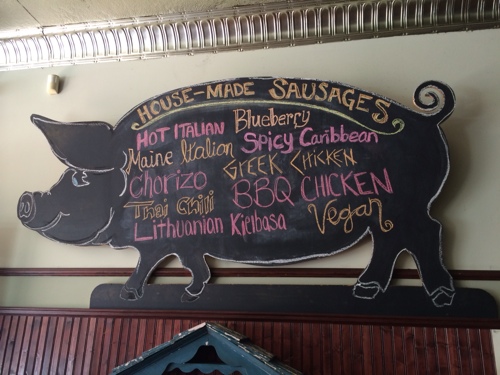 HOUSE-MADE SAUSAGES
HOT ITALIAN Blueberry
Maine Italian Spicy Caribbean
Chorizo GREEK CHICKEN
Thai Chili BBQ CHICKEN
Lithuanian Kielbasa Vegan